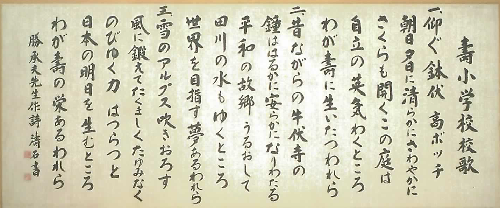 壽小学校校歌
一、仰ぐ鉢伏 高ボッチ
朝日夕日に清らかにさわやかに
さくらも開くこの庭は
自立の英気わくところ
わが壽に生いたつわれら
二、昔ながらの牛伏寺の
鐘ははるかに安らかになりわたる
平和の故郷うるおして
田川の水もゆくところ
世界を目指す夢あるわれら
三、雪のアルプス吹きおろす
風に鍛えてたくましくたゆみなく
のびゆく力 はつらつと
日本の明日を生むところ
わが壽の栄あるわれら
勝承夫先生作詩 清石書